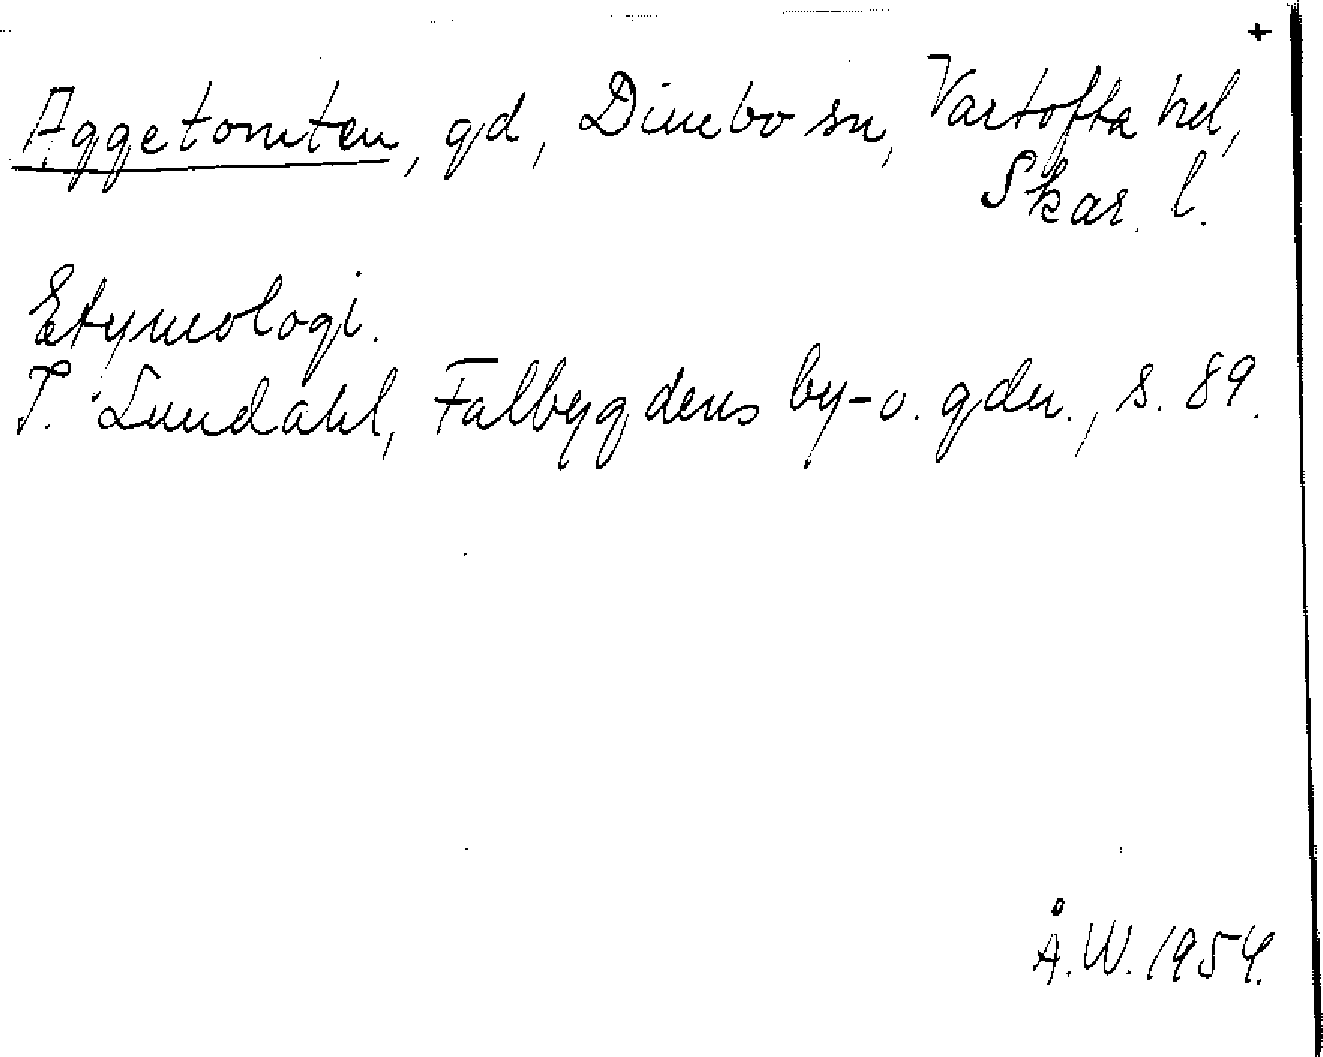 +
Aggetomten, gd, Dimbo sn, Vartofta hd,
Skar. l.
Etymologi.
I. Lundahl, Falbygdens by- o. gdn., s. 89.
Å.W. 1954.